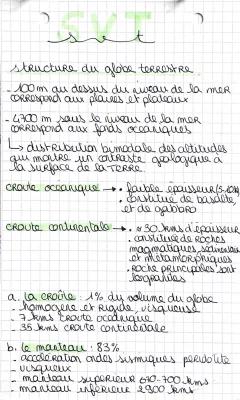 SVT
svt
structure du globe terrestre
- 100 m au dessus du niveau de la mer
correspond aux plaines et plateaux
- 4700 m sous le niveau de la mer
correspond aux fonds océaniques
↳ distribution bimodale des altitudes
qui montre un contraste géologique à
la surface de la Terre.
croute océanique → • faible épaisseur (5-10km)
• constituée de basalte
et de gabbro
croute continentale → • ≈ 30 kms d'épaisseur
• constituée de roches
magmatiques, sédimentaires
et métamorphiques
• roche principales sont
les granites
a. la croûte : 1% du volume du globe
- homogène et rigide, visqueuse
- 7 kms croute océanique
- 35 kms croute continentale
b. le manteau : 83%
- accélération ondes sismiques péridotite
- visqueux
- manteau supérieur 670-700 kms
- manteau inférieur 2900 kms